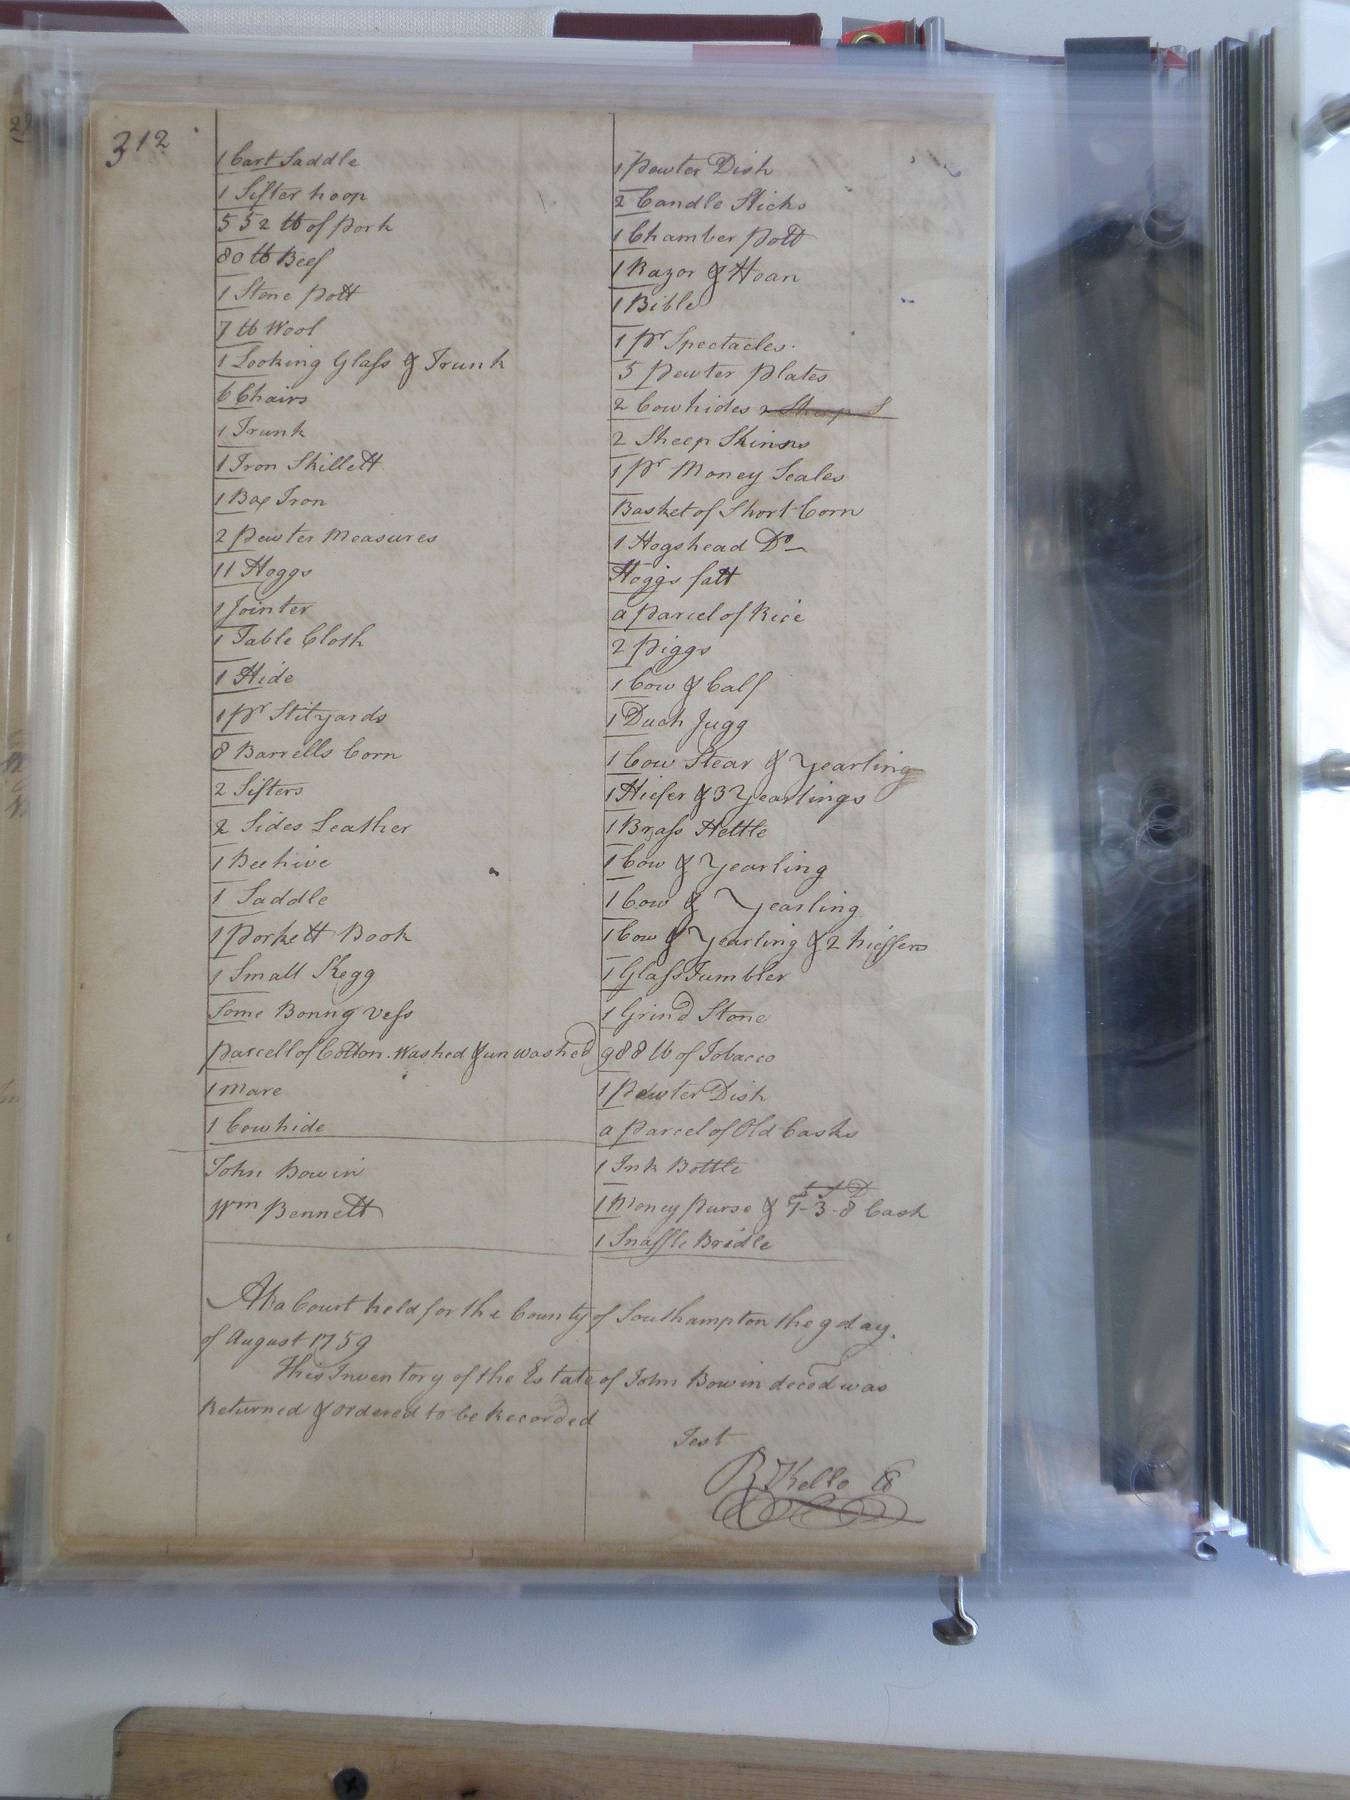 312
1 Cart Saddle
1 Sifter hoop
552 lb of pork
80 lb Beef
1 Stone pott
7 lb Wool
1 Looking Glass & Trunk
6 Chairs
1 Trunk
1 Iron Skillett
1 Box Iron
2 pewter Measures
11 Hoggs
1 Jointer
1 Table Cloth
1 Hide
1 pr Stilyards
8 Barrells Corn
2 Sifters
2 Sides Leather
1 Beehive
1 Saddle
1 pockett Book
1 Small Kegg
Some Bonng vess
parcell of Cotton Washed & unwashed
1 mare
1 Cowhide
John Bowin
Wm Bennett
1 pewter Dish
2 Candle Sticks
1 Chamber pott
1 Razor & Hoan
1 Bible
1 pr Spectacles
5 pewter plates
2 Cowhides 2 Sheep S
2 Sheep Skinns
1 pr Money Scales
Basket of Short Corn
1 Hogshead Do
Hoggs fatt
a parcel of Rice
2 piggs
1 Cow & Calf
1 Duch Jugg
1 Cow Stear & Yearling
1 Hiefer & 3 Yearlings
1 Brass Kettle
1 Cow & Yearling
1 Cow & Yearling
1 Cow & Yearling & 2 hieffers
1 Glass Tumbler
1 Grind Stone
988 lb of Tobacco
1 pewter Dish
a parcel of Old Casks
1 Ink Bottle
1 Money purse & 7-3-8 Cash
1 Snaffle Bridle
At a Court held for the County of Southampton the 9 day
of August 1759
This Inventory of the Estate of John Bowin decd was
Returned & ordered to be Recorded
Test
R Kello